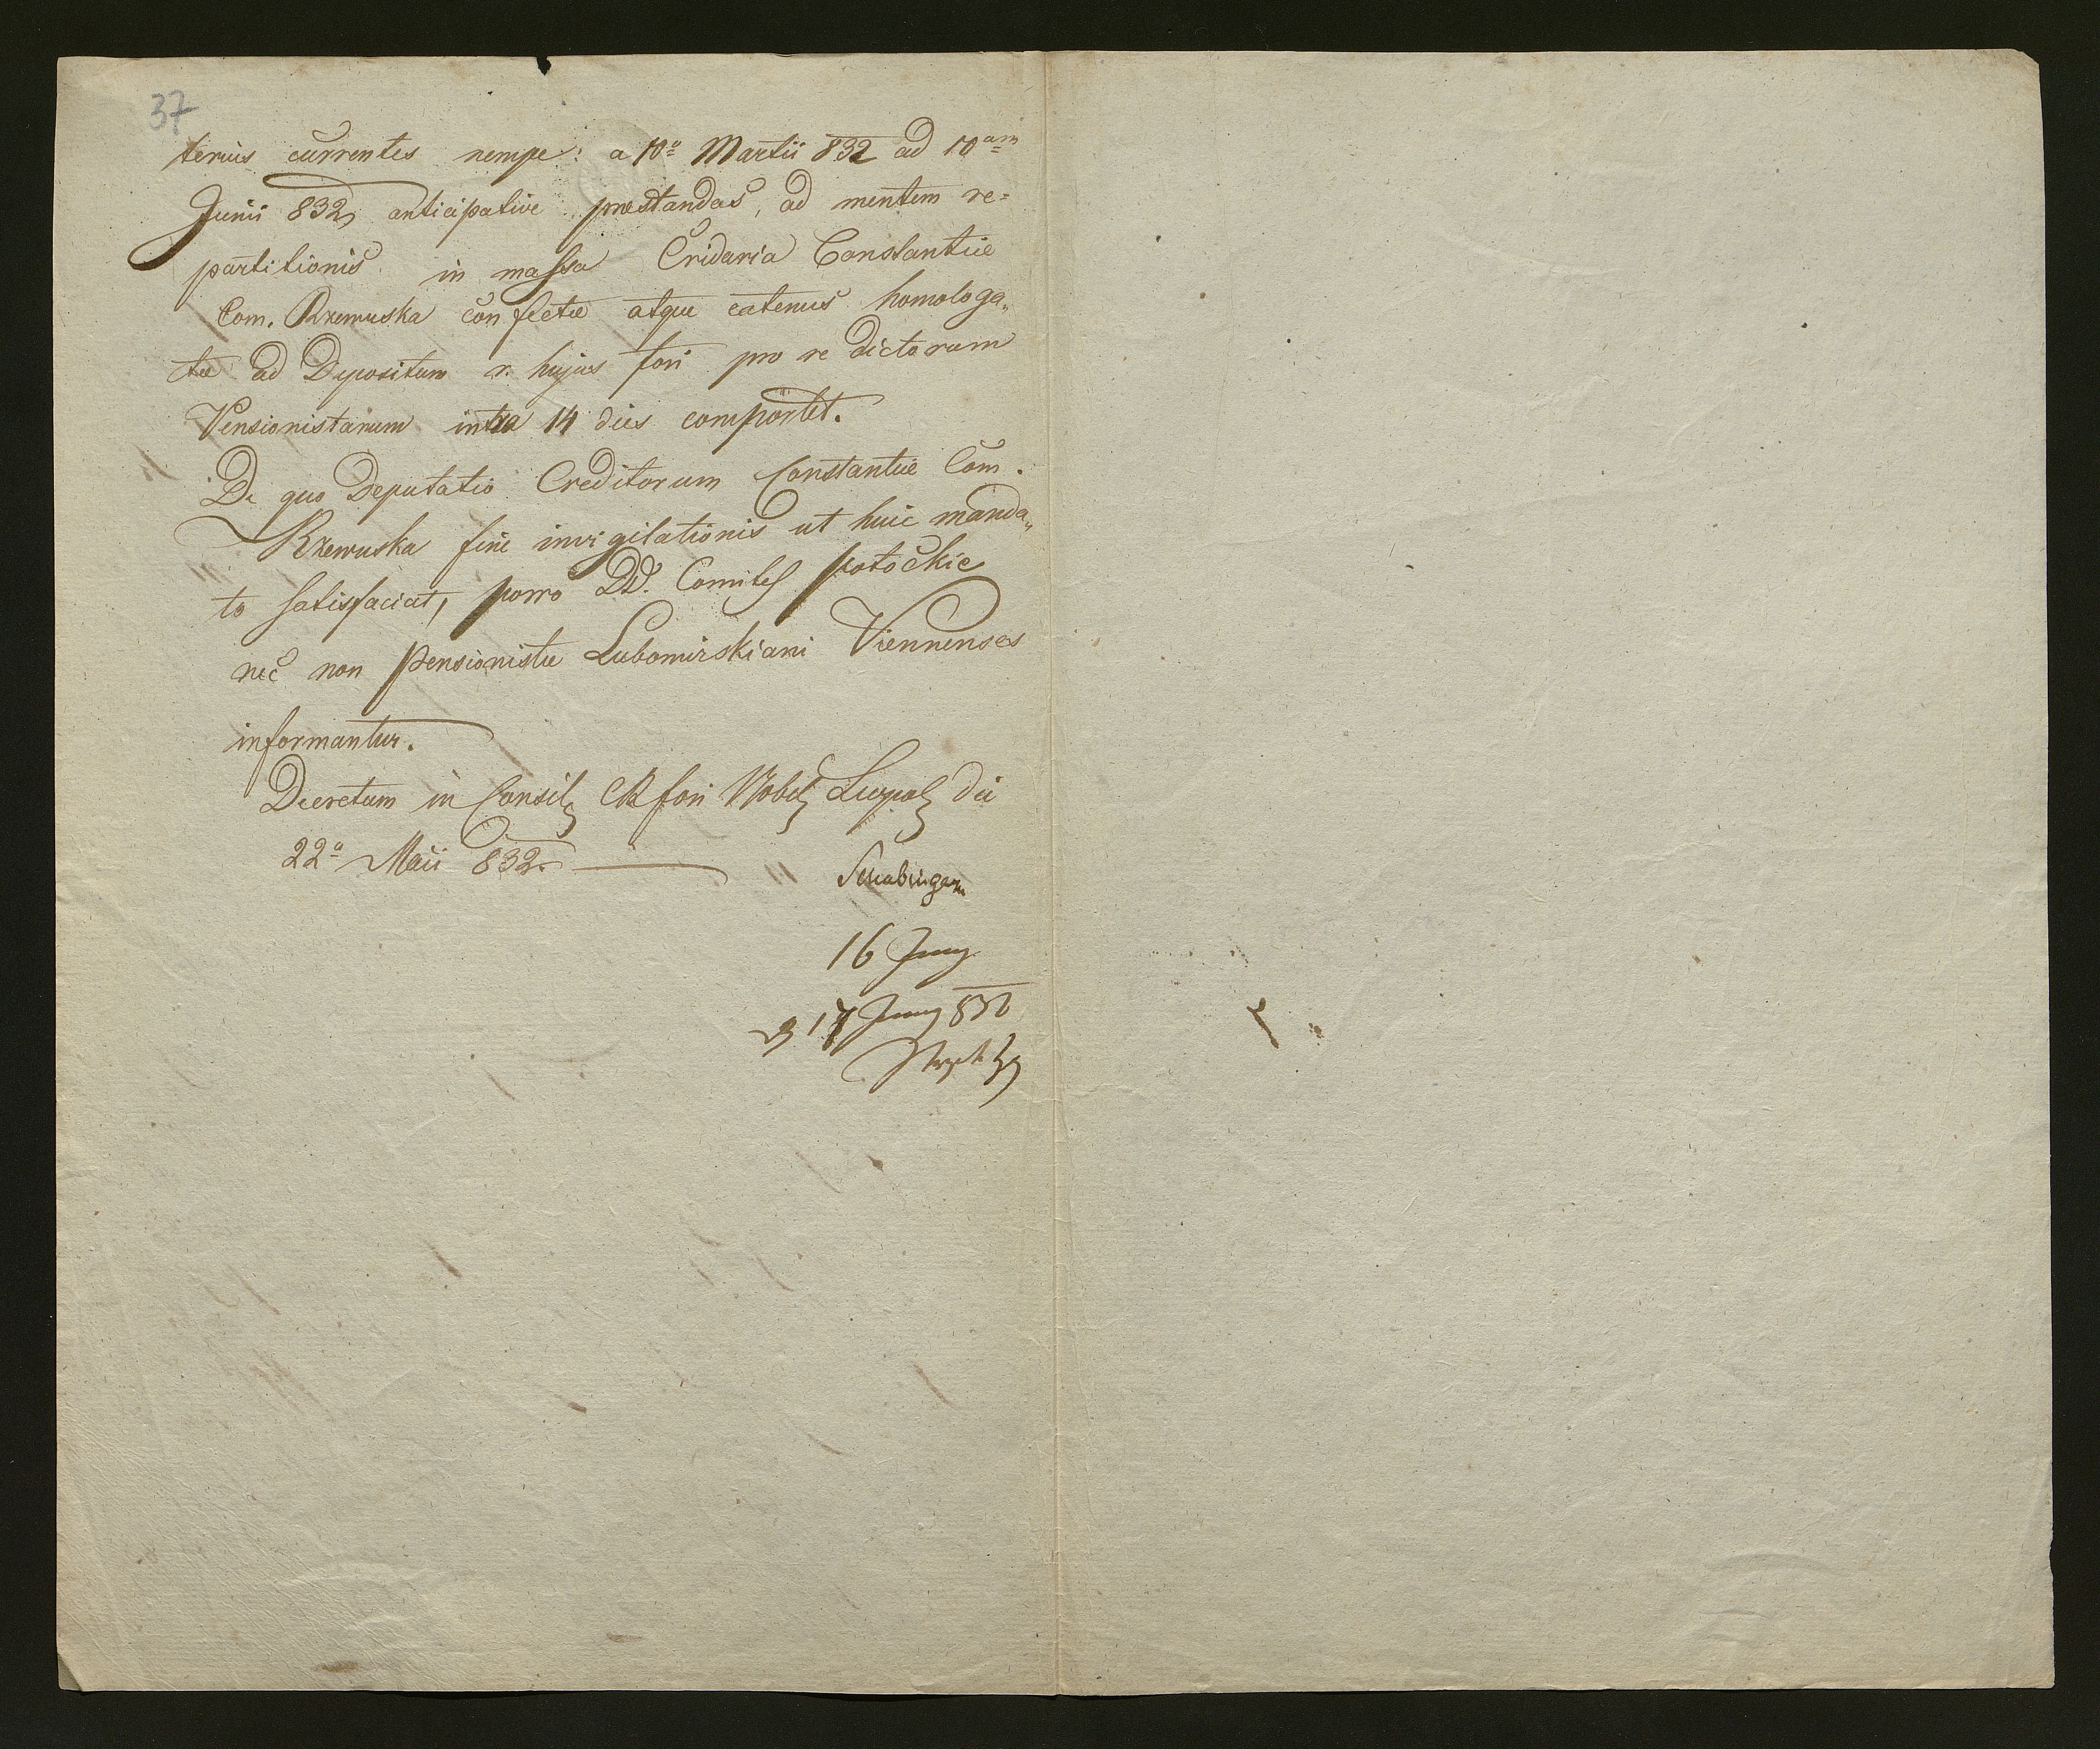 37
terius currentes nempe: a 10º Martii 832 ad 10am
Junii 832, anticipative præstandas, ad mentem re=
partitionis in massa Cridaria Constantiæ
Com. Rzewuska confectæ atque eatenus homologa„
tæ ad Depositum r. hujus fori pro re dictorum
Pensionistarum intra 14 dies comportet.
De quo Deputatio Creditorum Constantiæ Com.
Rzewuska fine invigilationis ut huic manda„
to satisfaciat, porro DD. Comites Potockie
nec non Pensionistæ Lubomirskiani Viennenses
informantur.
Decretum in Consil CR fori Nobil Leopol die
22º Maii 832.
16 Juny
17 Juny 832